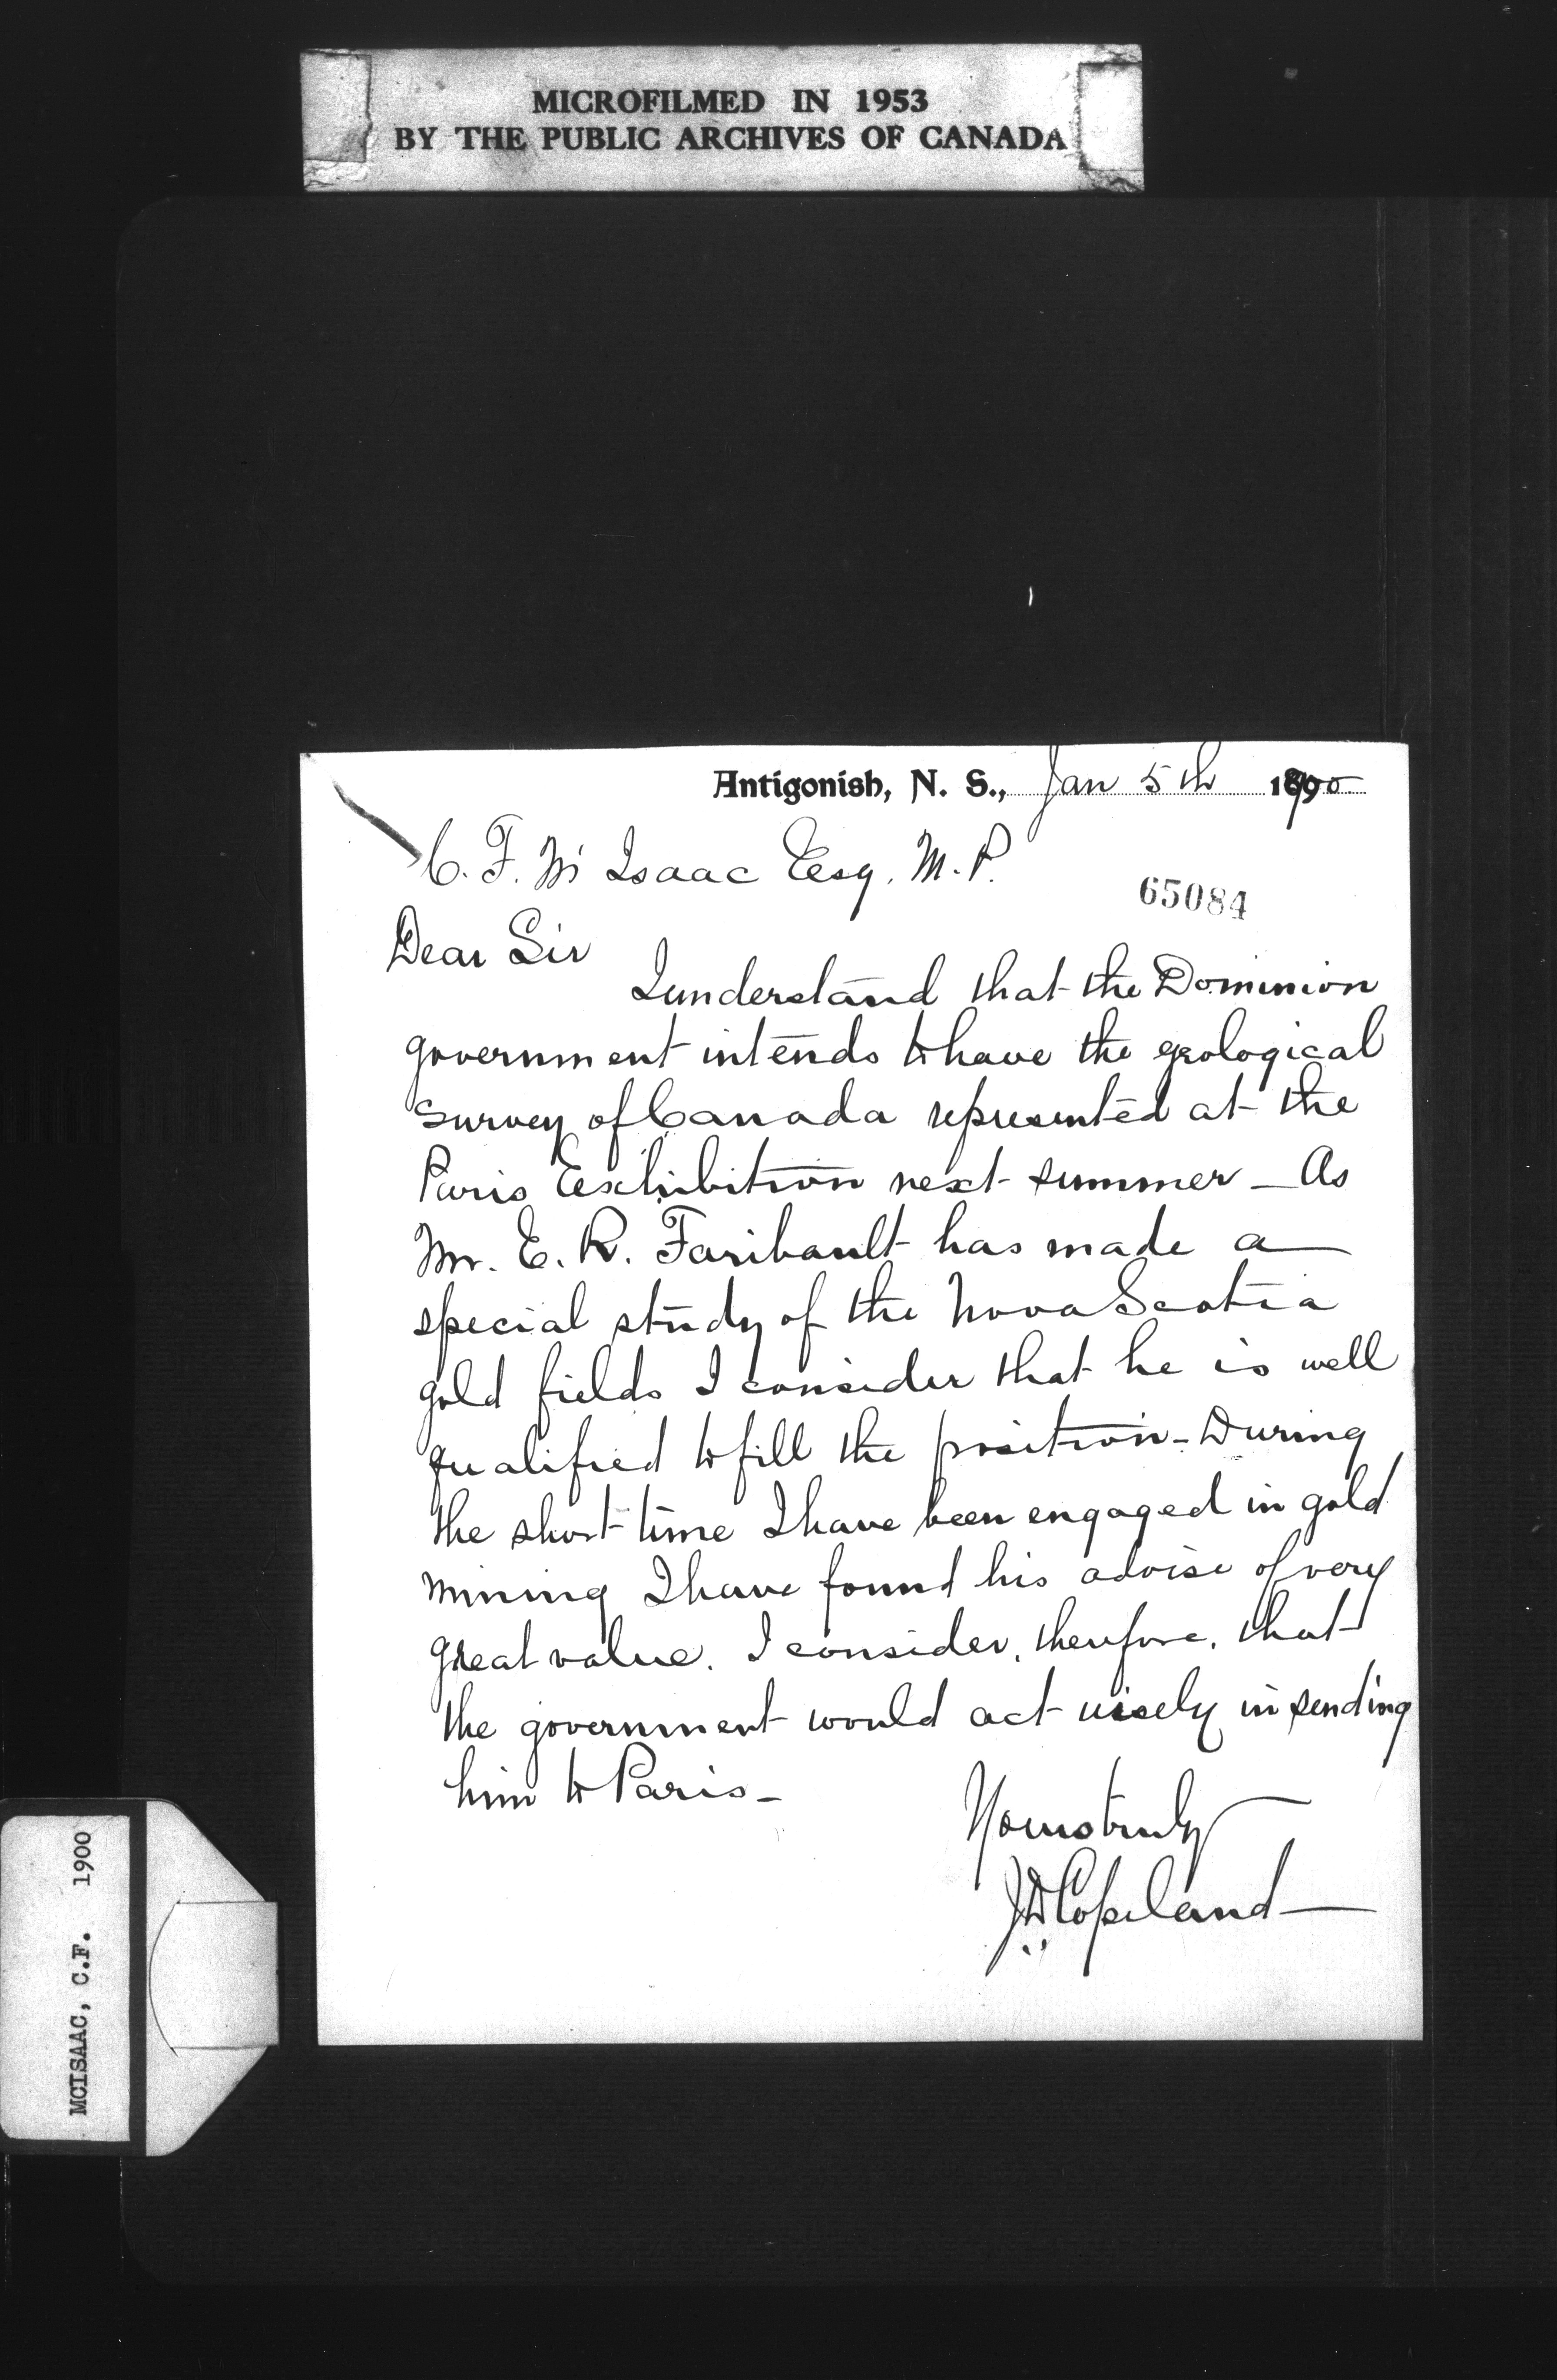 MICROFILMED IN 1953
BY THE PUBLIC ARCHIVES OF CANADA
Antigonish, N. S., Jan 5th 1900
C. F. Mc Isaac Esq. M.P.
65084
Dear Sir
I understand that the Dominion
government intends to have the geological
survey of Canada represented at the
Paris Exhibition next summer _ As
Mr. E. R. Faribault has made a
special study of the Nova Scotia
gold fields I consider that he is well
qualified to fill the position - During
the short time I have been engaged in gold
mining I have found his advise of very
great value. I consider, therefore, that
the government would act wisely in sending
him to Paris -
Yours truly
J D Copeland
MCISAAC, C.F. 1900